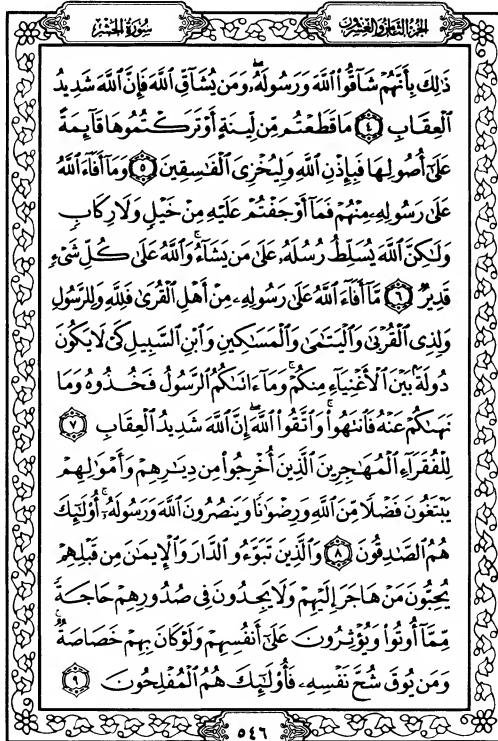 سُورَةُ الحَشْرِ
الجُزْءُ الثَّامِنُ وَالعِشْرُونَ
ذَٰلِكَ بِأَنَّهُمْ شَآقُّوا۟ ٱللَّهَ وَرَسُولَهُۥ ۖ وَمَن يُشَآقِّ ٱللَّهَ فَإِنَّ ٱللَّهَ شَدِيدُ
ٱلْعِقَابِ ٤ مَا قَطَعْتُم مِّن لِّينَةٍ أَوْ تَرَكْتُمُوهَا قَآئِمَةً
عَلَىٰٓ أُصُولِهَا فَبِإِذْنِ ٱللَّهِ وَلِيُخْزِىَ ٱلْفَٰسِقِينَ ٥ وَمَآ أَفَآءَ ٱللَّهُ
عَلَىٰ رَسُولِهِۦ مِنْهُمْ فَمَآ أَوْجَفْتُمْ عَلَيْهِ مِنْ خَيْلٍ وَلَا رِكَابٍ
وَلَٰكِنَّ ٱللَّهَ يُسَلِّطُ رُسُلَهُۥ عَلَىٰ مَن يَشَآءُ ۚ وَٱللَّهُ عَلَىٰ كُلِّ شَىْءٍ
قَدِيرٌ ٦ مَّآ أَفَآءَ ٱللَّهُ عَلَىٰ رَسُولِهِۦ مِنْ أَهْلِ ٱلْقُرَىٰ فَلِلَّهِ وَلِلرَّسُولِ
وَلِذِى ٱلْقُرْبَىٰ وَٱلْيَتَٰمَىٰ وَٱلْمَسَٰكِينِ وَٱبْنِ ٱلسَّبِيلِ كَىْ لَا يَكُونَ
دُولَةًۢ بَيْنَ ٱلْأَغْنِيَآءِ مِنكُمْ ۚ وَمَآ ءَاتَىٰكُمُ ٱلرَّسُولُ فَخُذُوهُ وَمَا
نَهَىٰكُمْ عَنْهُ فَٱنتَهُوا۟ ۚ وَٱتَّقُوا۟ ٱللَّهَ ۖ إِنَّ ٱللَّهَ شَدِيدُ ٱلْعِقَابِ ٧
لِلْفُقَرَآءِ ٱلْمُهَٰجِرِينَ ٱلَّذِينَ أُخْرِجُوا۟ مِن دِيَٰرِهِمْ وَأَمْوَٰلِهِمْ
يَبْتَغُونَ فَضْلًا مِّنَ ٱللَّهِ وَرِضْوَٰنًا وَيَنصُرُونَ ٱللَّهَ وَرَسُولَهُۥٓ ۚ أُو۟لَٰٓئِكَ
هُمُ ٱلصَّٰدِقُونَ ٨ وَٱلَّذِينَ تَبَوَّءُو ٱلدَّارَ وَٱلْإِيمَٰنَ مِن قَبْلِهِمْ
يُحِبُّونَ مَنْ هَاجَرَ إِلَيْهِمْ وَلَا يَجِدُونَ فِى صُدُورِهِمْ حَاجَةً
مِّمَّآ أُوتُوا۟ وَيُؤْثِرُونَ عَلَىٰٓ أَنفُسِهِمْ وَلَوْ كَانَ بِهِمْ خَصَاصَةٌ ۚ
وَمَن يُوقَ شُحَّ نَفْسِهِۦ فَأُو۟لَٰٓئِكَ هُمُ ٱلْمُفْلِحُونَ ٩
٥٤٦